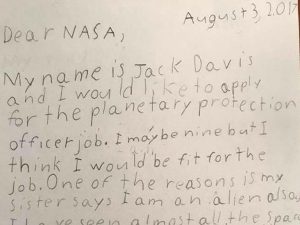 August 3, 2017
Dear NASA,
My name is Jack Davis
and I would like to apply
for the planetary protection
officer job. I maybe nine but I
think I would be fit for the
job. One of the reasons is my
sister says I am an alien also,
I have seen almost all the space